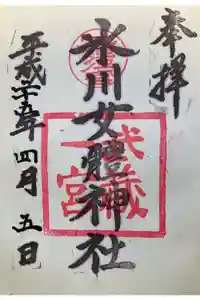 奉拝
武蔵
一宮
氷川女體神社
平成二十五年四月五日